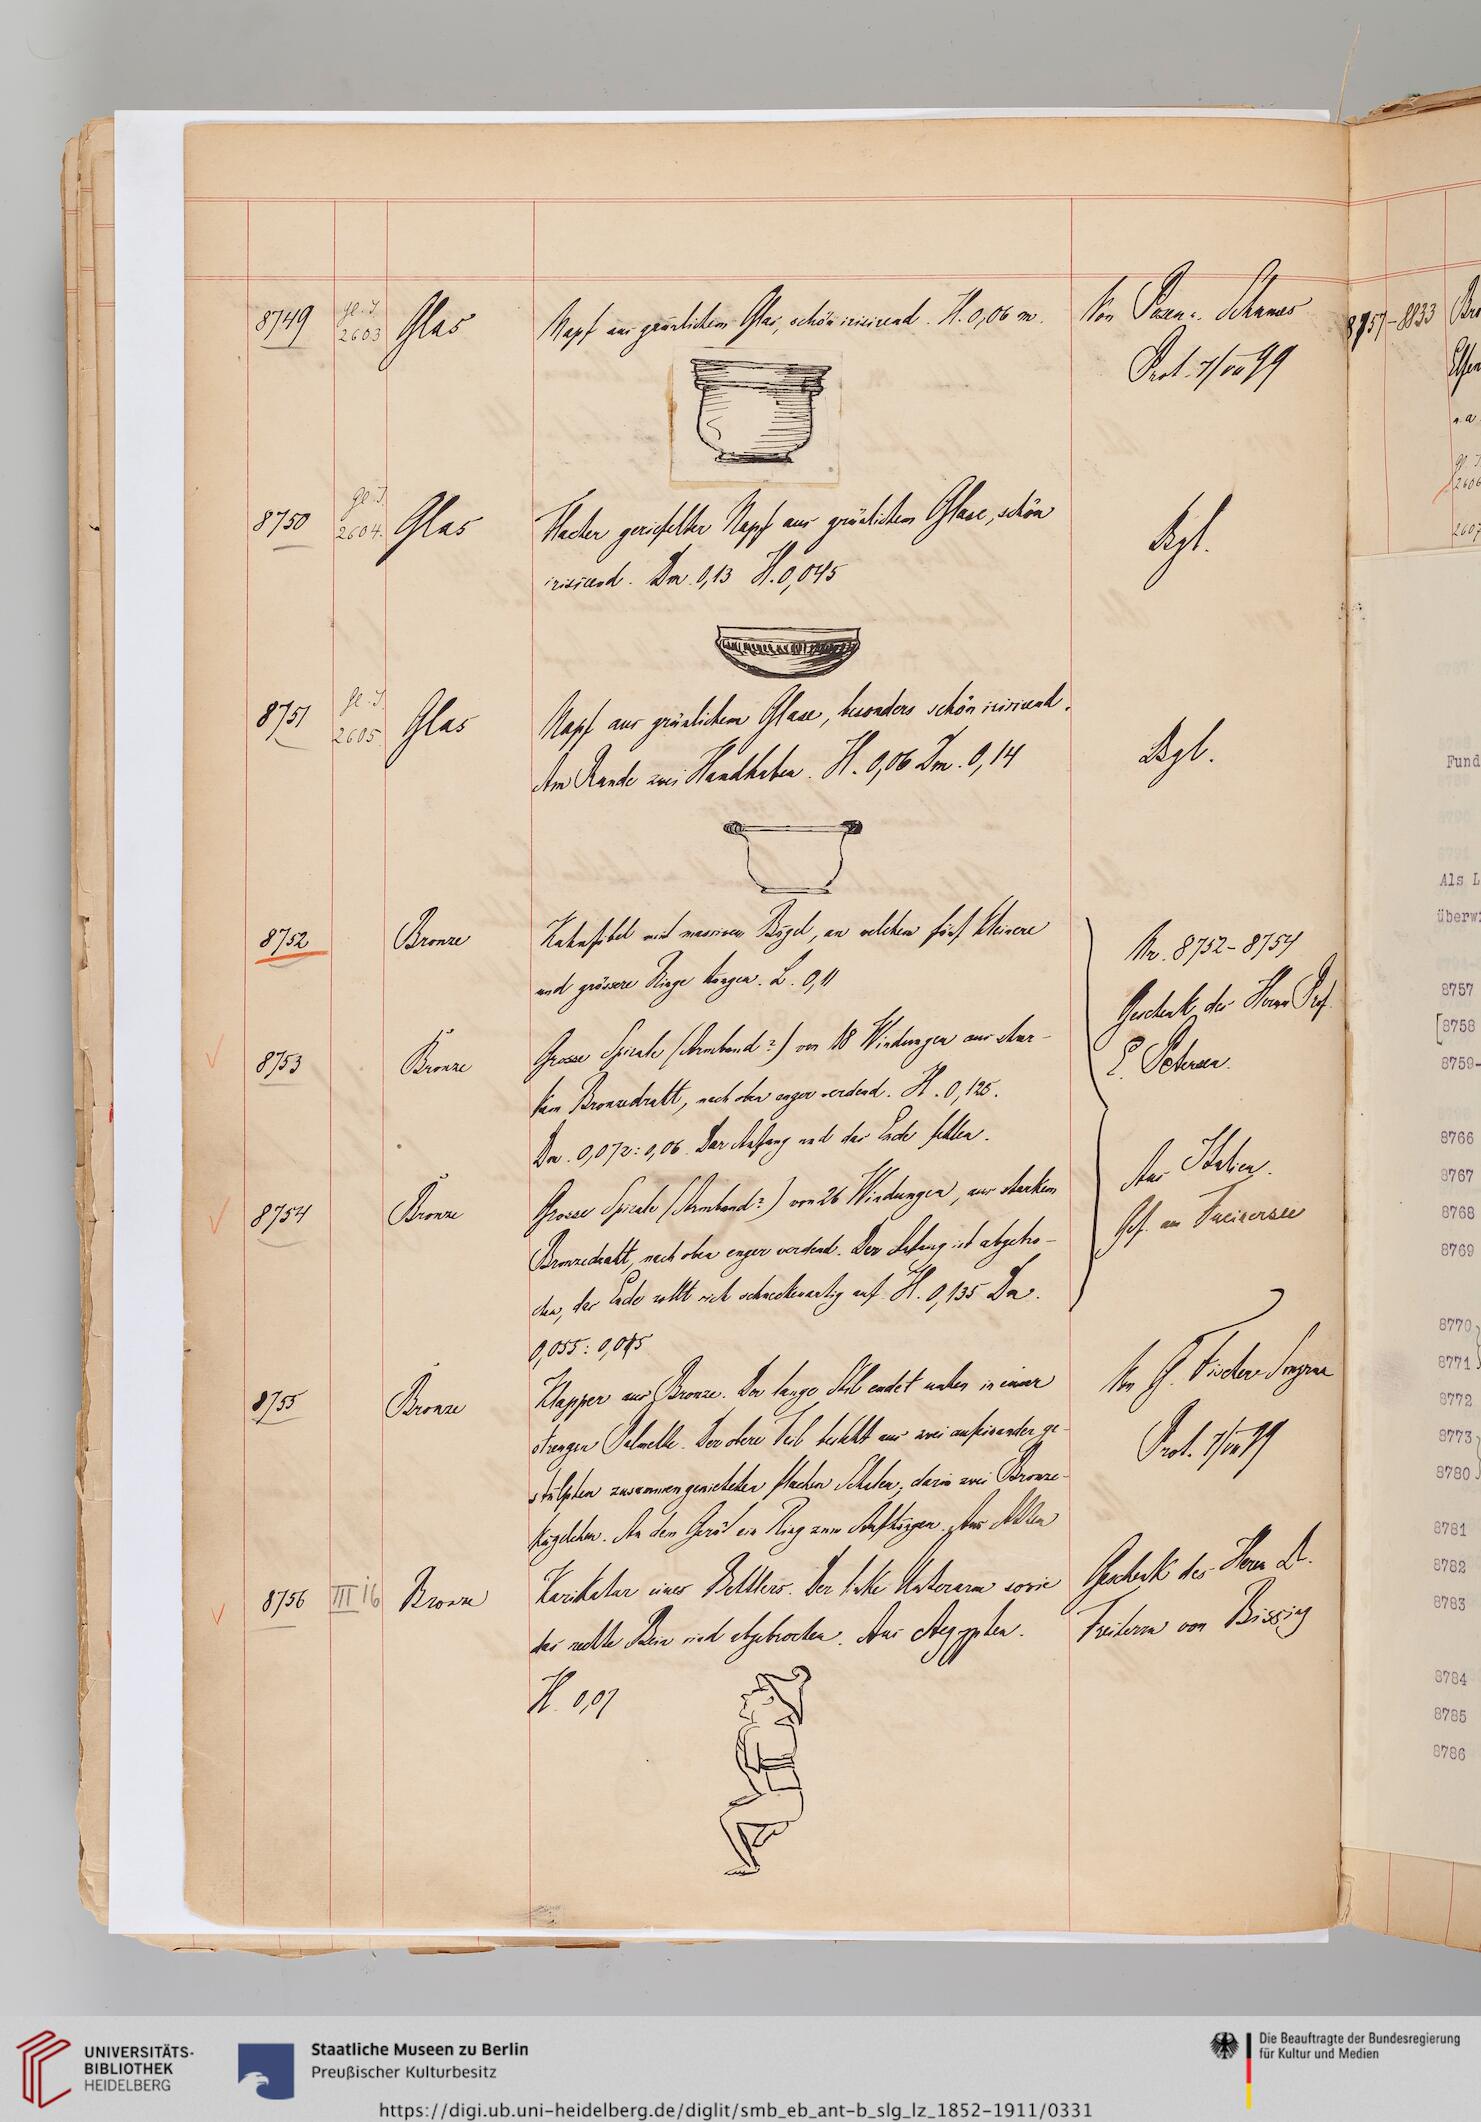 8749
gl. I.
2603
Glas
Napf aus grünlichem Glas, schön irisirend. H. 0,06 m.
Von
Prot. 7/VII 99
8750
gl. I.
2604.
Glas
Flacher geriefelter Napf aus grünlichem Glase, schön
irisirend. Dm. 0,13 H. 0,045
Dsgl.
8751
gl. I.
2605.
Glas
Napf aus grünlichem Glase, besonders schön irisirend.
Am Rande zwei Handhaben. H. 0,06 Dm. 0,14
Dsgl.
8752
Bronze
Kahnfibel mit massivem Bügel, an welchem fünf kleinere
und grössere Ringe hängen. L. 0,11
Nr. 8752-8754
Geschenk des Herrn Prof.
E. Petersen.
8753
Bronze
Grosse Spirale (Armband?) von 18 Windungen aus star-
kem Bronzedraht, nach oben enger werdend. H. 0,125.
Dm. 0,072: 0,06. Der Anfang und das Ende fehlen.
Aus Italien.
Gef. am
8754
Bronze
Grosse Spirale (Armband?) von 26 Windungen, aus starkem
Bronzedraht, nach oben enger werdend. Der Anfang ist abgebro-
chen, das Ende rollt sich schneckenartig auf. H. 0,135 Dm.
0,055: 0,045
8755
Bronze
Klapper aus Bronze. Der lange Stiel endet unten in einer
strengen Palmette. Der obere Teil besteht aus zwei aufeinander ge-
stülpten zusammengenieteten flachen Schalen, darin zwei Bronze-
kügelchen. An dem Gerät ein Ring zum Aufhängen. Aus Athen
Von Fischer Smyrna
Prot. 7/VII 99
8756
III i 6
Bronze
Karikatur eines Bettlers. Der linke Unterarm sowie
das rechte Bein sind abgebrochen. Aus Aegypten.
H. 0,07
Geschenk des Herrn Dr.
Freiherrn von Bissing
8757-8833
Bro
Elfen
u. a
2606
2607
Fund
Als L
überw
8757
[8758
8759-
8766
8767
8768
8769
8770
8771
8772
8773
8780
8781
8782
8783
8784
8785
8786
UNIVERSITÄTS-
BIBLIOTHEK
HEIDELBERG
Staatliche Museen zu Berlin
Preußischer Kulturbesitz
Die Beauftragte der Bundesregierung
für Kultur und Medien
https://digi.ub.uni-heidelberg.de/diglit/smb_eb_ant-b_slg_lz_1852-1911/0331